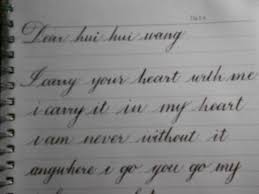 Date
Dear hui hui wang
I carry your heart with me
i carry it in my heart
i am never without it
anywhere i go you go my